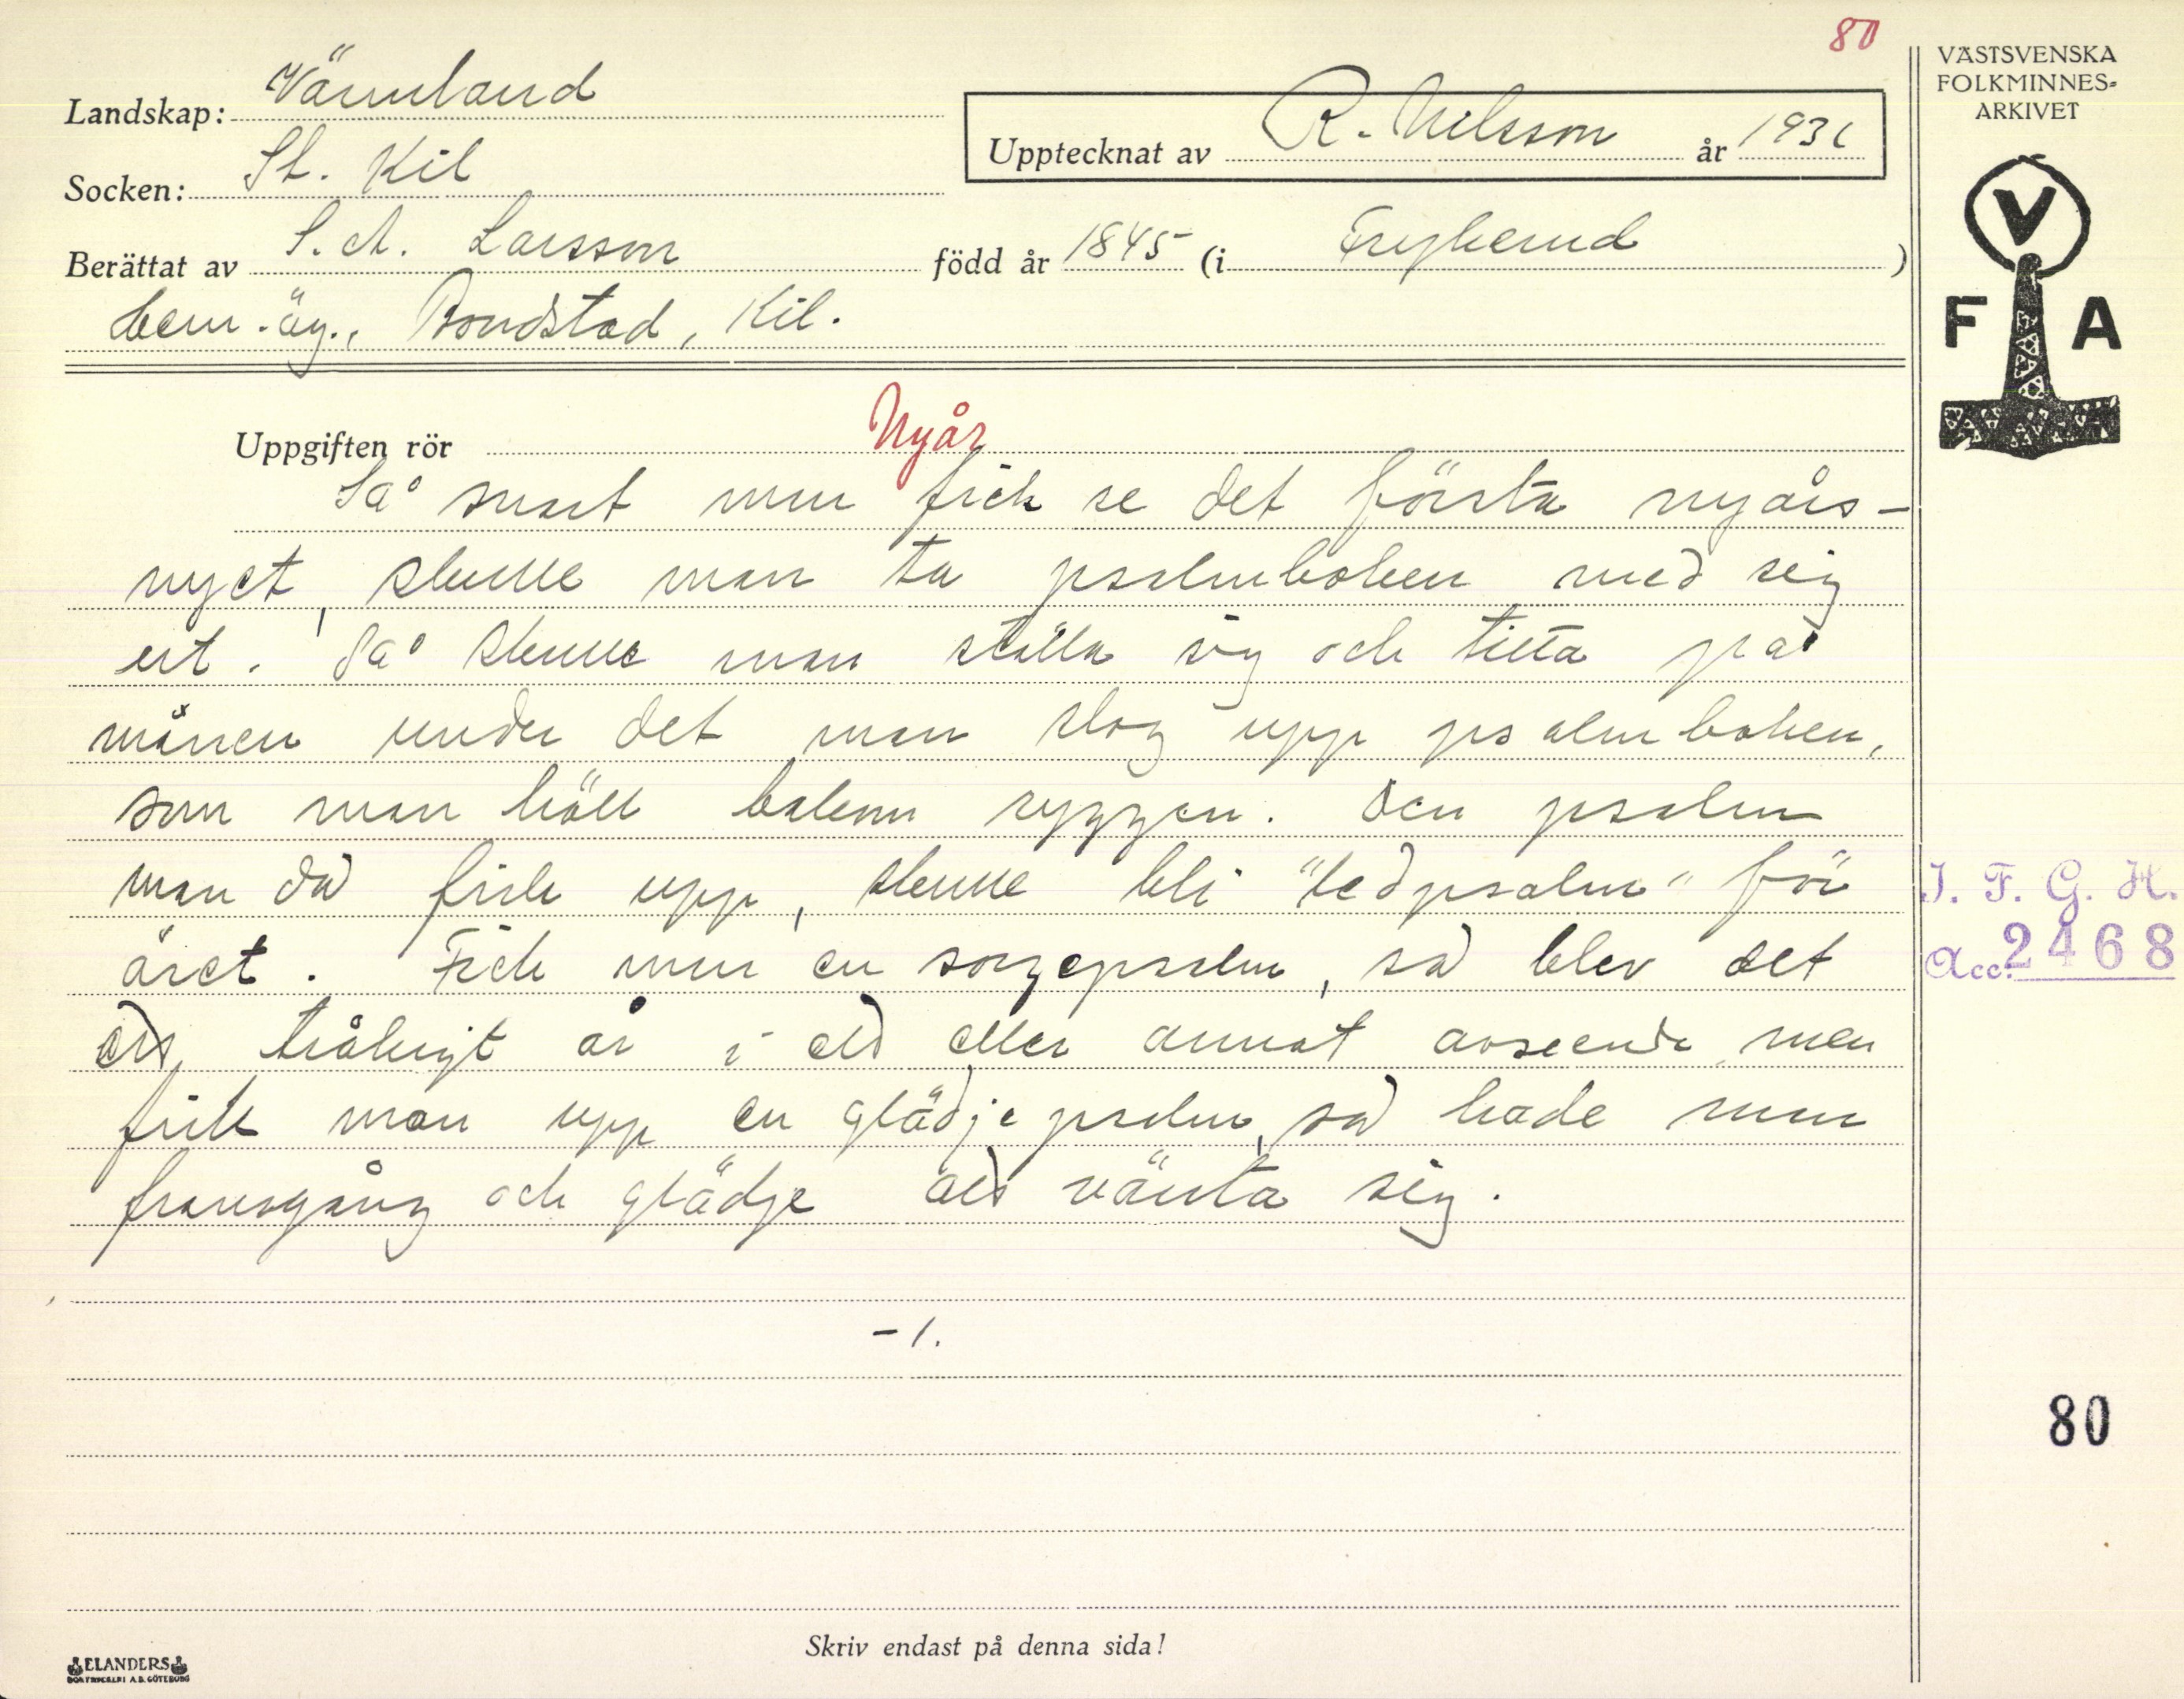 80
VÄSTSVENSKA
FOLKMINNES-
ARKIVET
Landskap: Värmland
Upptecknat av R. Nilsson år 1931
Socken: St. Kil
Berättat av S. A. Larsson född år 1845 (i Frykerud)
hem.äg., Bondstad, Kil.
V
F A
Uppgiften rör Nyår
Så snart man fick se det första nyårs-
nyet, skulle man ta psalmboken med sig
ut. Så skulle man ställa sig och titta på
månen under det man slog upp psalmboken,
som man höll bakom ryggen. Den psalm
man då fick upp, skulle bli "ledpsalm" för
året. Fick man en sorgepsalm, så blev det
ett tråkigt år i ett eller annat avseende, men
fick man upp en glädjepsalm, så hade man
framgång och glädje att vänta sig.
- 1.
I. F. G. H.
Acc. 2468
80
Skriv endast på denna sida!
ELANDERS
BOKTRYCKERI A.B. GÖTEBORG